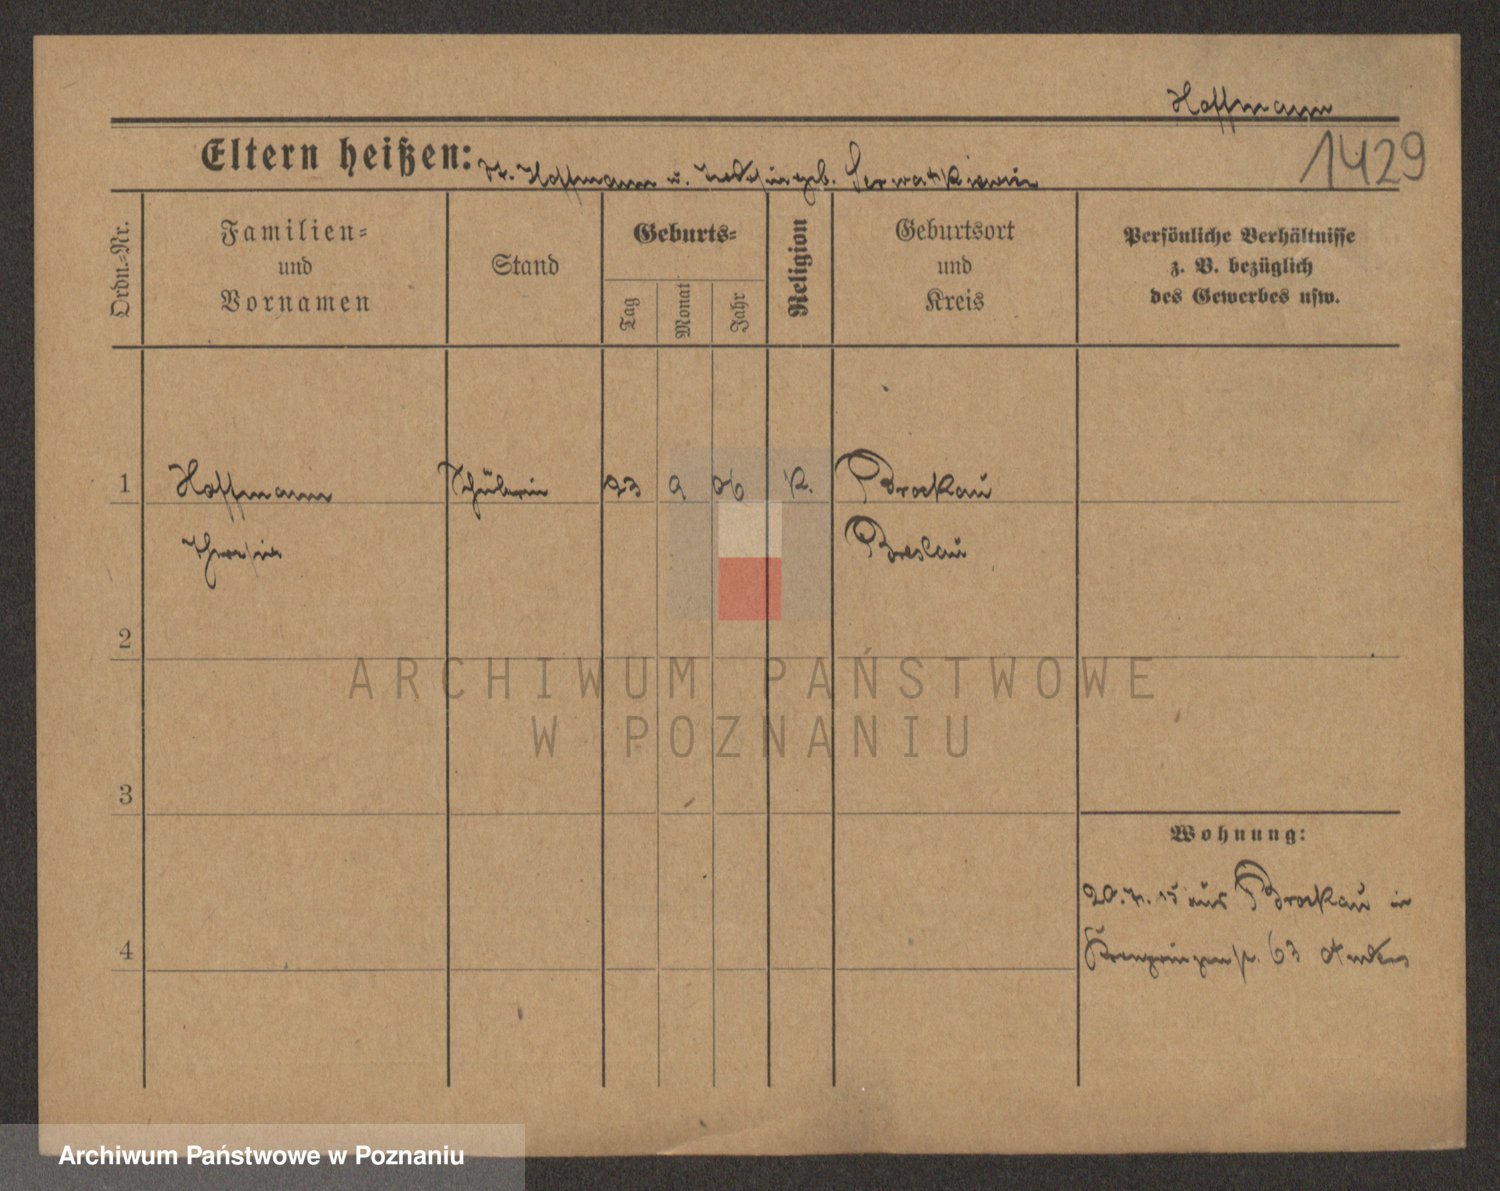 Hoffmann
1429
Eltern heißen: Hoffmann u. geb.
Ordn.-Nr.
Familien-
und
Vornamen
Stand
Geburts-
Tag
Monat
Jahr
Religion
Geburtsort
und
Kreis
Persönliche Verhältnisse
z. B. bezüglich
des Gewerbes usw.
1 Hoffmann Schülerin 23 9 06 K. Brockau
Breslau
2
ARCHIWUM PAŃSTWOWE
W POZNANIU
3
Wohnung:
20.7.15 aus Brockau in
4 Kronprinzenstr. 63
Archiwum Państwowe w Poznaniu